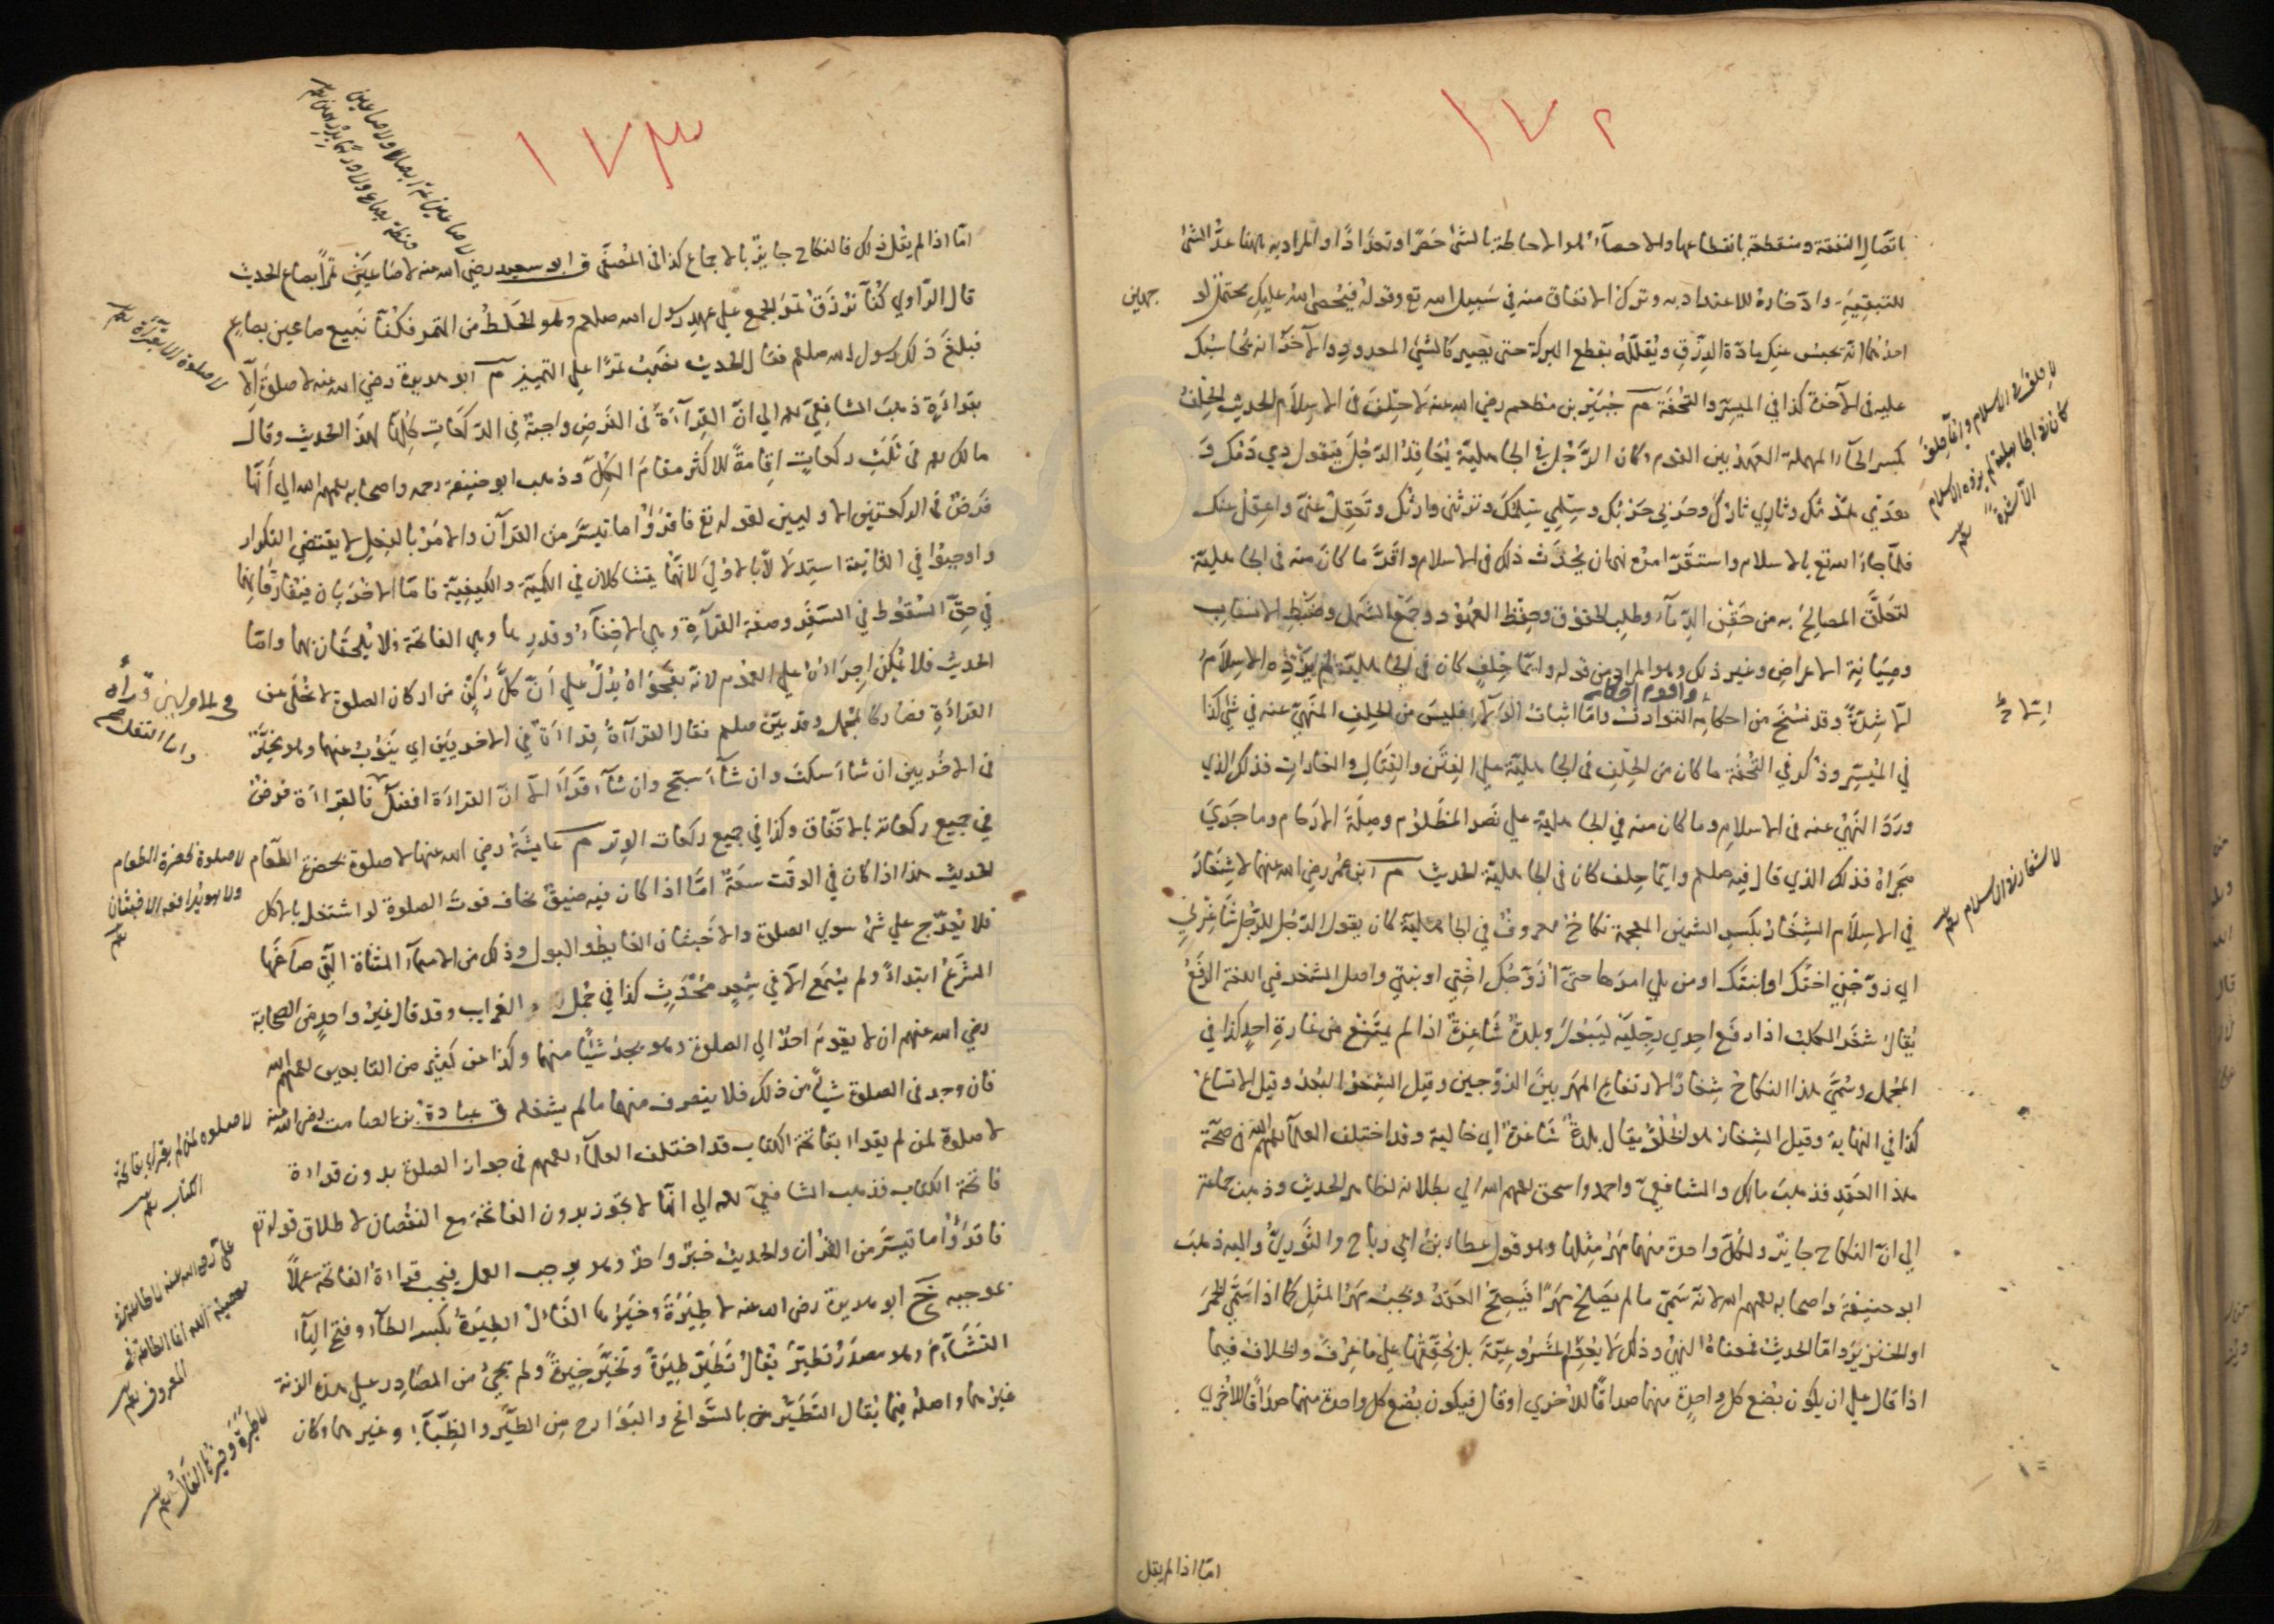 ١٧٢
باتصال النفقة ومنقطعة بانقطاعها والاحصآء هو الاحاطة بالشئ حَصْرًا وتعدادًا والمراد به ههنا عدُّ الشئ
للتبقية وادّخاره للاعتداد به وترك الانفاق منه في سَبيل الله تع وقوله فيُحصى الله عليكِ محتمل لو
جهين
احدهما انّه يحبس عنكِ مادّة الرِّزقِ ويُقلّله بقطع البركة حتى يصير كالشئ المعدود والآخر انه يُحاسبك
عليه في الآخرة كذا في الميسّر والتُحفة م جُبَيْر بن مطعم رضي الله عنه لا حِلْفَ في الاسِلاَم الحديث الحِلْفُ
لا حلف في الاسلام وايما حلف
كان في الجاهلية لم يزده الاسلام
الّا شدّة
بكسر الحآء المهملة العَهدُ بين القوم وكان الرَّجُل في الجاهليّة يُعَاقِدُ الرّجلَ فيقول دمِي دمُك وَ
هَدْمي هَدْمُك وثارِي ثارُكَ وحَرْبي حَرْبُك وسِلْمِي سِلْمُكَ وترثُني وارثُكَ وتَعقِلُ عنّي واعقِلُ عنك
فلمّا جآءَ الله تع بالاسلام واستقرّ امرُه نهى ان يُحْدَث ذلك في الاسلام واقرَّ ما كانَ منه في الجاهليّة
لتعَلُّق المصالِحِ به من حَقْنِ الدِّمآءِ وطلب الحقوق وحِفْظِ العُهُود وجَمْع الشَّمل وضَبْطِ الانسَاب
وصِيَانةِ الاعراضِ وغير ذلك وهو المراد من قوله وايّما حِلفٍ كان في الجاهليّة لم يَزِدْه الاِسِلاَمُ
الّا شِدّةً وقد نسُخَ من احكامِه التوارث وامّا اثبات فليسَ من الحِلفِ المنهيّ عنه في شئ كذا
في المُيَسِّر وذُكِر في التُّحفَة ما كان من الحِلْفِ في الجاهليّة على الفِتَن والقِتَالِ والغارات فذلك الذي
ورَدَ النَهْيُ عنه في الاسلامِ وما كان منه في الجاهليّة على نَصر المَظْلُوم وصِلَةِ الارْحَام وما جَرَي
مجراهُ فذلك الذي قال فيه صلعم وايّما حِلف كان في الجاهليّة الحديث م ابن عمر رضي الله عنهما لا شِغَارَ
لا شغار في الاسلام
في الاسِلاَم الشِغَارُ بكسرِ الشين المعجمة نكاحٌ معروفٌ في الجاهليّة كان يقول الرّجُل للرّجُل شاغِرْني
اي زوّجْنِي اختَك او ابنتَك او من يلي امرَها حتى اُزوّجُك اُختِي او بنتِي واصل الشغر في اللغة الرَّفعُ
يُقالُ شغَر الكلبُ اذا رفَع احدي رِجْليه ليبُولَ وبلدةٌ شَاغِرةٌ اذا لم يمتَنِع من غارةِ احدٍ كذا في
المُجْمل وسُمّيَ هذا النكاحُ شِغارًا لارتفاع المَهر بينَ الزوّجين وقيل الشِغْر البُعْدُ وقيل الاتساعُ
كذا في النهاية وقيل الشِغارُ هو الخُلُوّ يقال بلدةٌ شَاغرةٌ اي خالية وقد اختلف العلمآء رحمهم الله في صحّة
هذا العَقدِ فذهبَ مالك والشافعيّ واحمد واسحق رحمهم الله الي بطلانه لظاهر الحديث وذهبت جماعة
الي انّ النكاح جايز ولكلّ واحدة منهما مَهْرُ مِثلِها وهو قول عطاء بن ابي رباح والثَّوريُّ واليه ذهبَ
ابو حنيفة واصحابه رحمهم الله لانّه سَمَّى ما لم يَصْلُحْ مَهْرًا فيصِحُّ العَقْدُ ويجبُ مَهْرُ المثْل كما اذا سَمَّى الخمْرَ
او الخنزيرَ وامّا الحديث فمعناهُ النهيُ وذلك لا يُعْدِمُ المَشْرُوعيّةَ بل يُحَقِّقُها على ما عُرِفَ والخلافُ فيما
اذا قال علي ان يكون بُضع كل واحِدةٍ منهما صداقًا للاخري او قال فيكون بُضع كل واحدة منهما صداقًا للاُخري
امّا اذا لم يقل
١٧٣
امّا اذا لم يقُل ذلك فالنكاح جايزٌ بالاجماع كذا في المُصفَّى ق ابو سعيد رضي الله عنه لا صَاعَيْنِ تمرًا بصَاع الحديث
لا صاعين تمرا بصاع ولا صاعين
حنطة بصاع ولا درهما بدرهمين
قال الرّاوي كُنّا نُرزَقُ تمْرَ الجمْع علي عهدِ رسول الله صلعم وهو الخَلطُ من التمر فكُنّا نَبيع صاعين بصاعٍ
فبلغَ ذلك رسول الله صلعم فقال الحديث نصَبَ تمرًا على التمييز م ابو هريرة رضي الله عنه لا صلوةَ الّا
لا صلوة الا بقراءة
بقراءَةٍ ذهبَ الشافِعيّ رحمه الله الي انّ القِراءَةَ في الفَرضِ واجبةٌ في الرّكعَاتِ كلِّها لهذا الحديث وقالَ
مالك رحمه في ثَلٰثِ ركعاتٍ اِقامةً للاكثر مقامَ الكُلِّ وذهب ابو حنيفة رحمه واصحابه رحمهم الله الي أنّها
فَرْضٌ في الركعتينِ الاوليين لقوله تع فاقرَؤُا ما تيسَّرَ من القرآن والامْرُ بالفِعلِ لا يقتضِي التكرار
واوجبوُا في الثّانية استدلالًا بالاوُلَى لانّهُما يتشاكلان في الكميّة والكيفيّة فامّا الاُخْرَيان فيفارقانِهما
في حقّ السُقُوط في السَّفَرِ وصفة القراءةِ وهي الاخفآء وقدرِها وهي الفاتحة فلا يُلحقَان بهما وامّا
الحديث فلا يُمكِن اجراؤُه علي العُموم لانّه بفَحْواهُ يدُلُّ علي انّ كلَّ رُكنٍ من اركان الصلوة لا يخلَى عن
القراءَةِ فصار كالمُجْمل وقد بيّن صلعم فقال القراءَةُ في الاُوليين قراءةٌ في الاُخريَين اي يَنُوبُ عنهما وهو مخيَّرٌ
في الاُخريين ان شاءَ سكَتَ وان شآءَ سبّح وان شآءَ قَرَأ الّا انّ القراءَة افضلُ فالقِراءَة فرضٌ
في جميع ركعاته بالاتّفاق وكذا في جميع ركعات الوِتر م عايشَةُ رضي الله عنها لا صلوة بحضرة الطّعام
لا صلوة بحضرة الطعام
ولا هو يدافعه الاخبثان
الحديث هذا اذا كان في الوقت سعَةٌ امّا اذا كان فيه ضيقٌ يخاف فوتَ الصلوة لو اشتغل بالاكل
فلا يُعرّج علي شئ سوي الصلوة والاَخْبَثان الغايِطُ والبول وذلك من الاسمآء المثناة التي صاغَها
الشرْعُ ابتداءً ولم يُسْمَع الّا في شِعرٍ مُحْدَثٍ كذا في مُجْمل الغرايب وقد قال غيرُ واحدٍ من الصحابة
رضي الله عنهم ان لا يقومَ احدٌ الي الصلوة وهو يجدُ شيئًا منهما وكذا عن كثيرٍ من التابعين رحمهم الله
فان وجد في الصلوة شيئًا من ذلك فلا ينصرف منها ما لم يشغله ق عبادةُ بن الصامت رضي الله عنه
لا صلوه لمن لم يقراء بفاتحة
الكتاب
لا صلوة لمن لم يقرا بفاتحة الكتاب قد اختلف العلمآء رحمهم في جواز الصلوة بدون قراءة
فاتحة الكتاب فذهب الشافعيّ رحمه الي انّها لا تجوز بدون الفاتحة مع النقْصان لاطلاق قوله تع
فاقرَؤُا ما تيسَّر من القرآن والحديث خبرُ واحدٍ وهو يوجب العمل فيجب قراءةُ الفاتحة عملًا
لا طاعة في
معصية الله انما الطاعة في
المعروف
بموجبه خ ابو هريرة رضي الله عنه لا طِيَرةَ وخيرُها الفَالُ الطِيَرةُ بكسر الطآء وفتح اليآء
لا طيرة وخيرها الفأل
التشَآءُم وهو مصدَرُ تطيّرَ يُقالُ تَطيّرَ طِيَرةً وتخيَّر خِيَرةً ولم يجئْ من المصَادِر علي هذه الزنة
غيرُهما واصلُه فيما يُقال التَطَيُّرُ بالسَّوانح والبَوَارح من الطَّيْرِ والظِّبَآءِ وغيرهما وكان